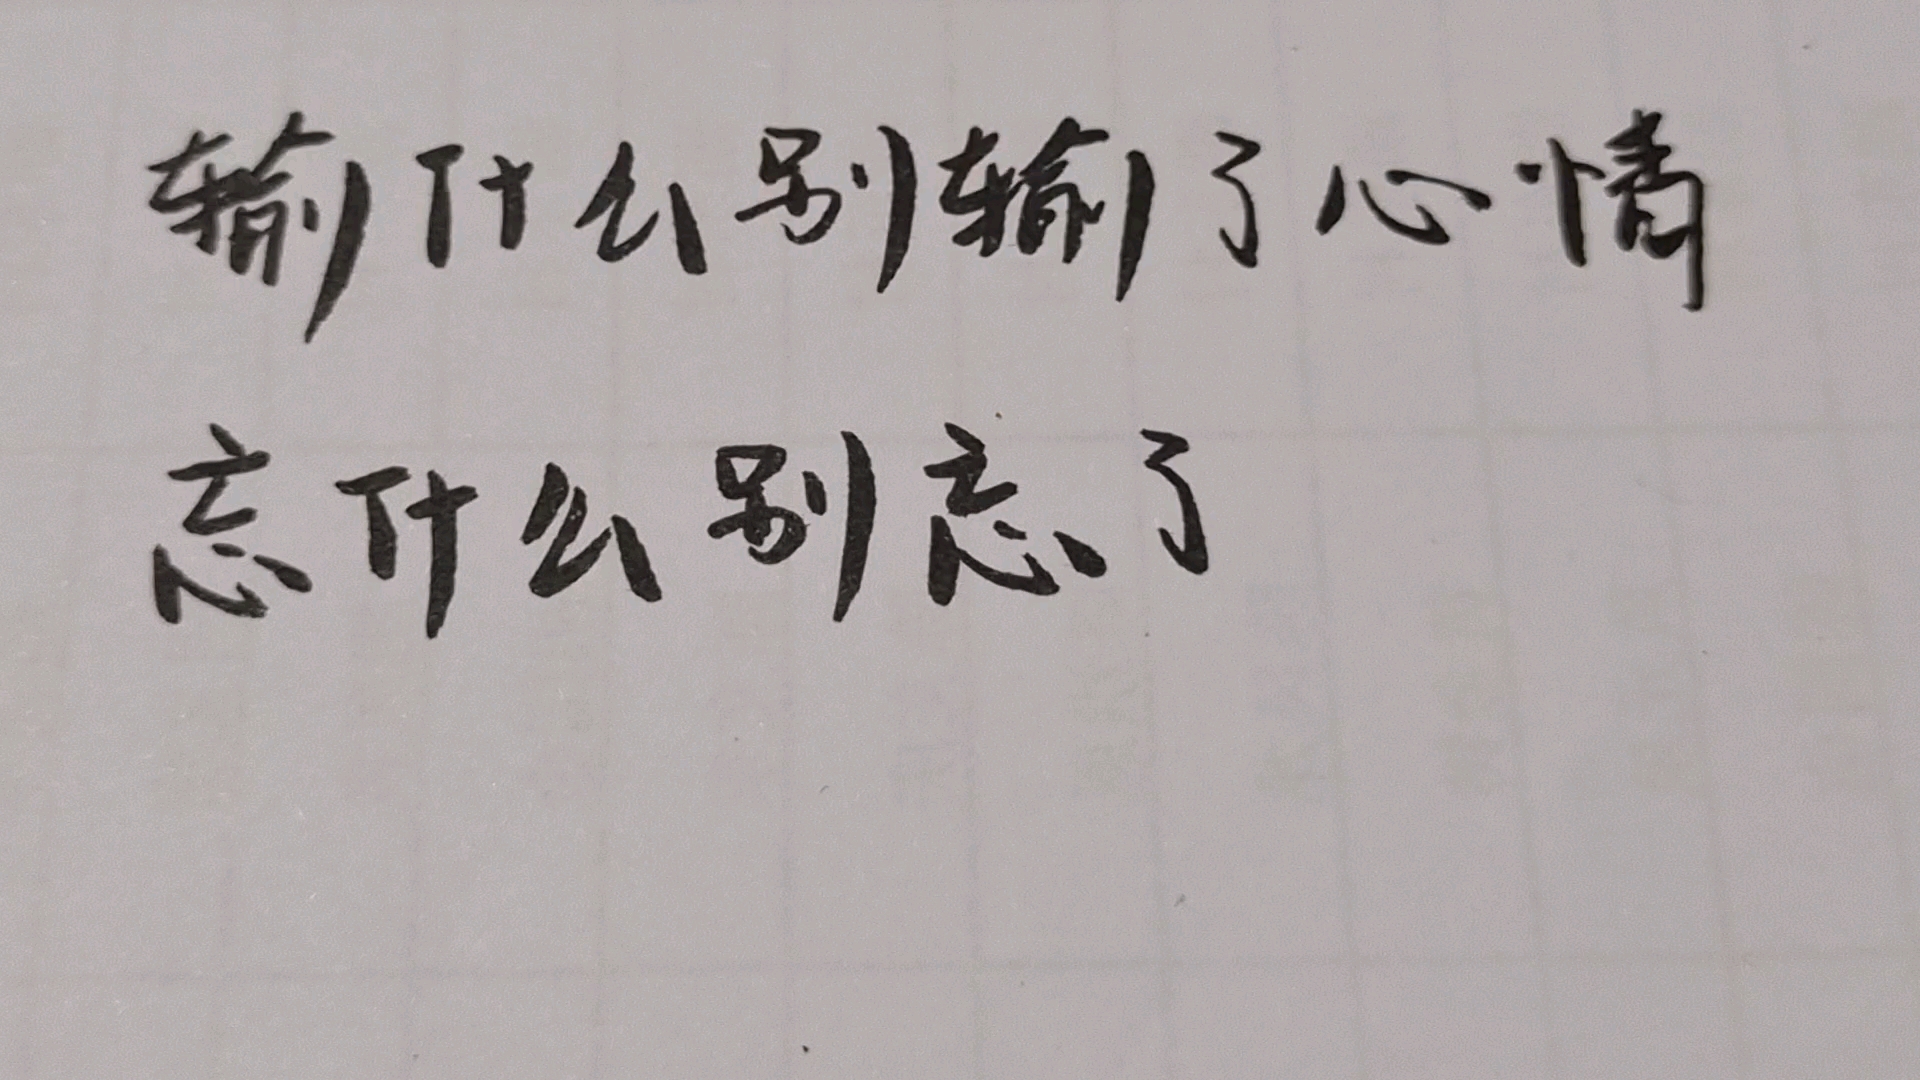 输什么别输了心情
忘什么别忘了